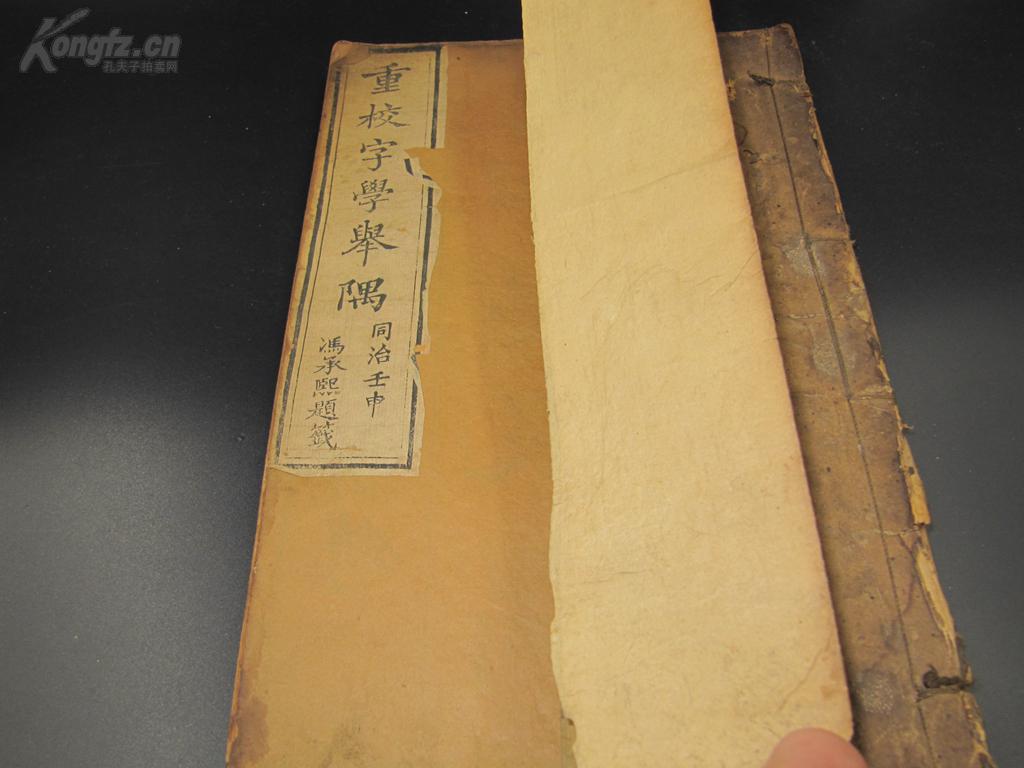 Kongfz.cn
孔夫子拍卖网
重校字學舉隅
同治壬申
馮承熙題籤